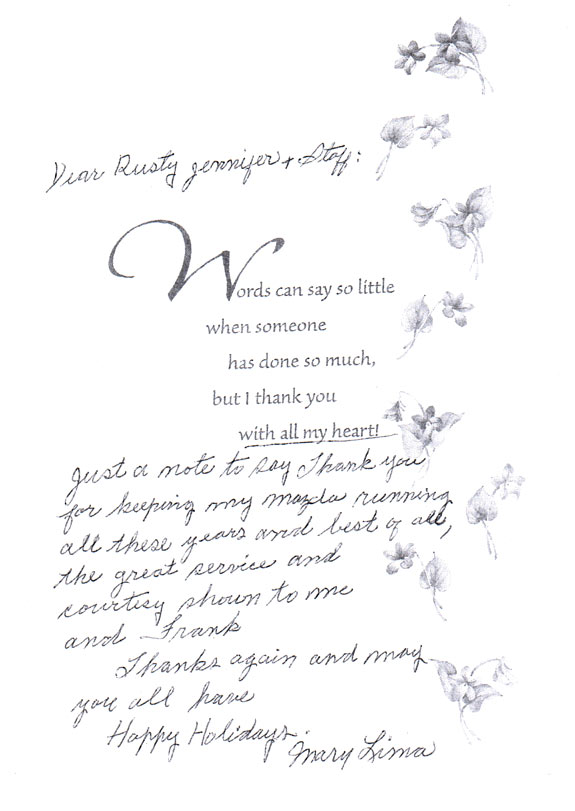 Dear Rusty Jennifer + Staff:
Words can say so little
when someone
has done so much,
but I thank you
with all my heart!
Just a note to say Thank you
for keeping my mazda running
all these years and best of all,
the great service and
courtesy shown to me
and Frank
Thanks again and may
you all have
Happy Holidays.
Mary Lima